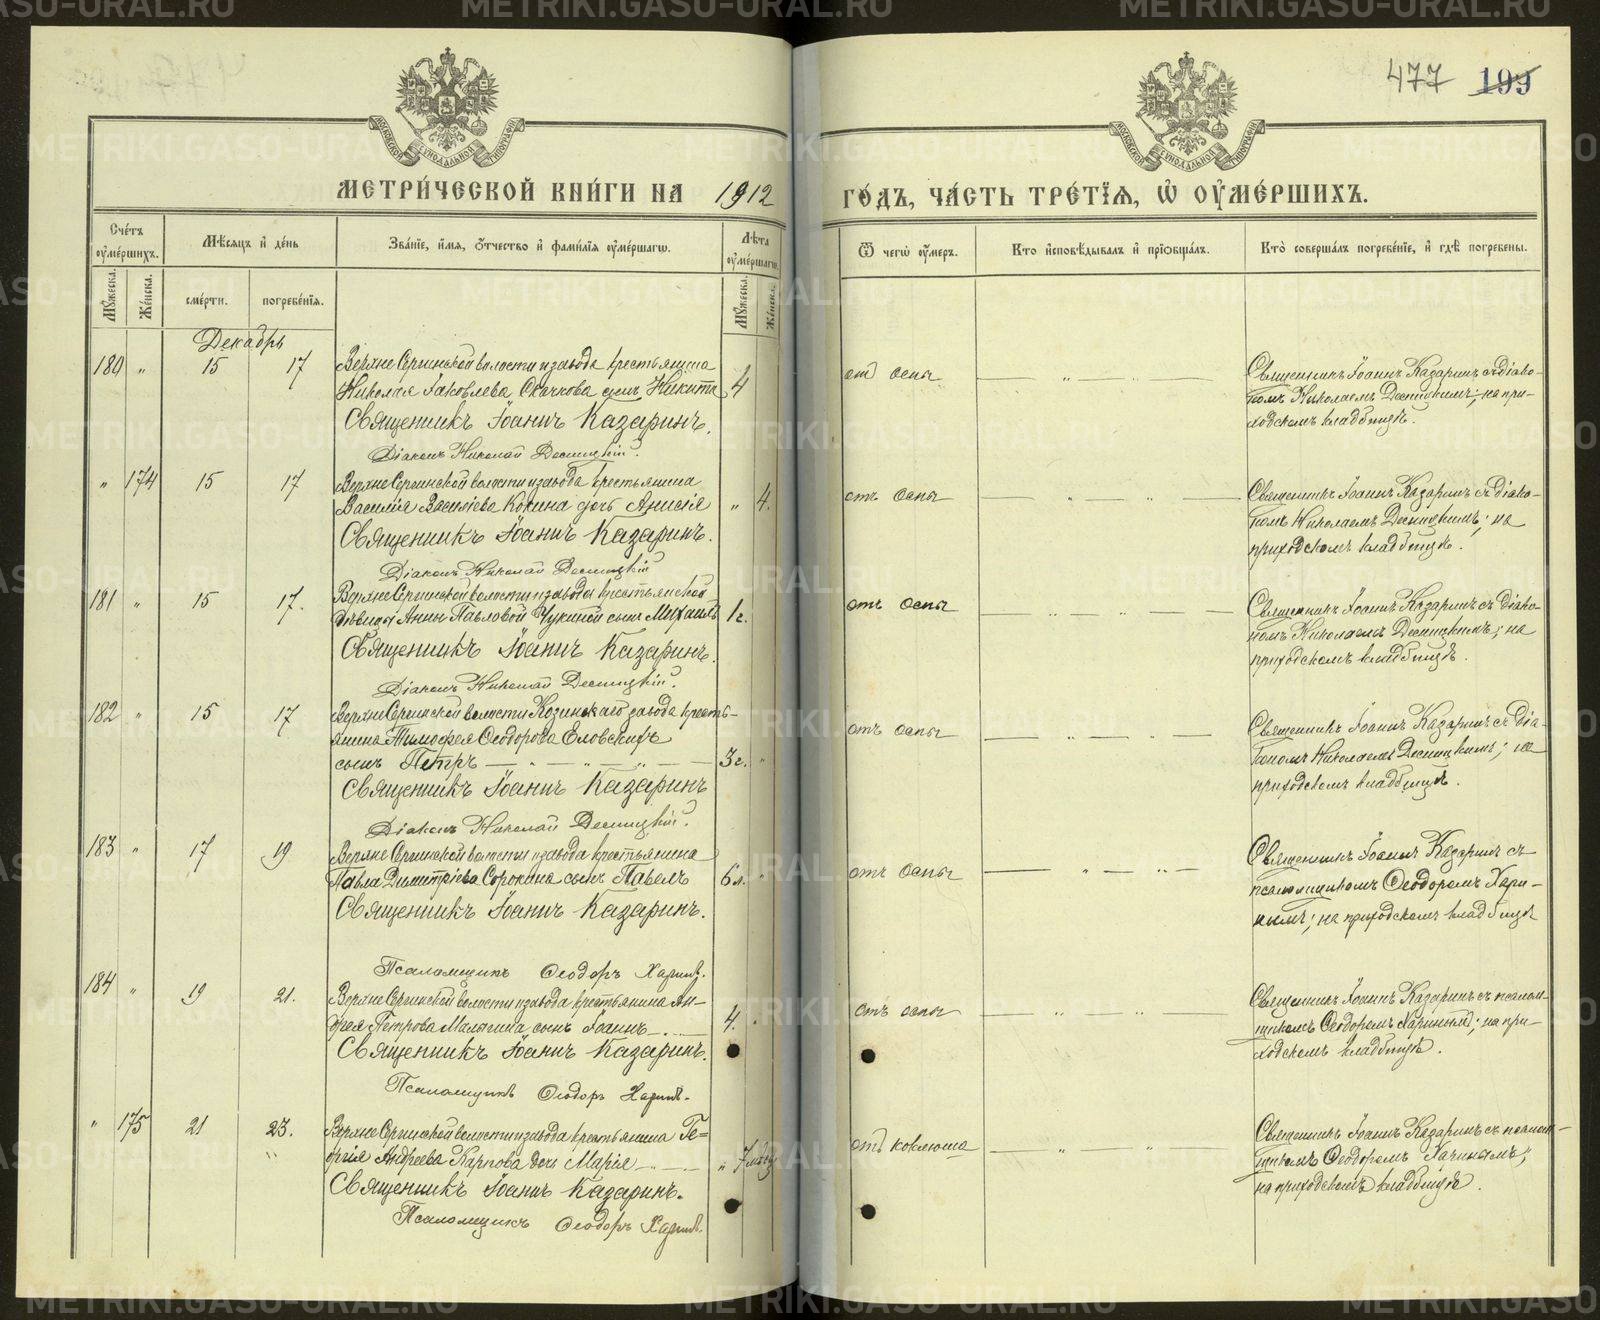 477 199
МОСКОВСКОЙ СѴНОДАЛЬНОЙ ТИПОГРАФІИ
МОСКОВСКОЙ СѴНОДАЛЬНОЙ ТИПОГРАФІИ
МЕТРИ́ЧЕСКОЙ КНИ́ГИ НА 1912
ГО́ДЪ, ЧА́СТЬ ТРЕ́ТІЯ, Ѡ҆ ОУ҆МЕ́РШИХЪ.
Сче́тъ оу҆ме́ршихъ.
Мѣ́сяцъ и҆ де́нь
Зва́ніе, и҆́мя, ѻ҆́тчество и҆ фами́лія оу҆ме́ршагѡ.
Лѣ́та оу҆ме́ршагѡ.
Ѿ чегѡ̀ оу҆́меръ.
Кто̀ и҆сповѣ́дывалъ и҆ прїѡбща́лъ.
Кто̀ соверша́лъ погребе́ніе, и҆ гдѣ̀ погребены̀.
Мꙋ́жеска. Же́нска. сме́рти. погребе́нія. Мꙋ́жеска. Же́нска.
Декабрь
180 " 15 17 Верхне Сергинской волости и завода крестьянина
Николая Іаковлева Скачкова сынъ Никита 4
Священникъ Іоаннъ Казаринъ.
Діаконъ Николай Десницкій.
отъ оспы
Священникъ Іоаннъ Казаринъ съ діако-
номъ Николаемъ Десницкимъ; на при-
ходскомъ кладбищѣ.
" 174 15 17 Верхне Сергинской волости и завода крестьянина
Василія Васильева Кокина дочь Анисія " 4.
Священникъ Іоаннъ Казаринъ.
Діаконъ Николай Десницкій
отъ оспы
Священникъ Іоаннъ Казаринъ съ діако-
номъ Николаемъ Десницкимъ; на
приходскомъ кладбищѣ.
181 " 15 17. Верхне Сергинской волости и завода крестьянской
дѣвицы Анны Павловой Чукиной сынъ Михаилъ 1 г.
Священникъ Іоаннъ Казаринъ.
Діаконъ Николай Десницкій.
отъ оспы
Священникъ Іоаннъ Казаринъ съ діако-
номъ Николаемъ Десницкимъ; на
приходскомъ кладбищѣ.
182 " 15 17 Верхне Сергинской волости Козинскаго завода кресть-
янина Тимофея Ѳеодорова Еловскихъ
сынъ Петръ — " — " — " — 3 г. "
Священникъ Іоаннъ Казаринъ
Діаконъ Николай Десницкій.
отъ оспы
Священникъ Іоаннъ Казаринъ съ діа-
кономъ Николаемъ Десницкимъ; на
приходскомъ кладбищѣ.
183 " 17 19 Верхне Сергинской волости и завода крестьянина
Павла Димитріева Сорокина сынъ Павелъ 6 л.
Священникъ Іоаннъ Казаринъ.
Псаломщикъ Ѳеодоръ Харинъ.
отъ оспы
Священникъ Іоаннъ Казаринъ съ
псаломщикомъ Ѳеодоромъ Хари-
нымъ; на приходскомъ кладбищѣ
184 " 19 21. Верхне Сергинской волости и завода крестьянина Ан-
дрея Петрова Малыгина сынъ Іоаннъ 4.
Священникъ Іоаннъ Казаринъ.
Псаломщикъ Ѳеодоръ Харинъ.
отъ оспы
Священникъ Іоаннъ Казаринъ съ псалом-
щикомъ Ѳеодоромъ Харинымъ; на при-
ходскомъ кладбищѣ.
" 175 21 23. Верхне Сергинской волости и завода крестьянина Ге=
оргія Андреева Карпова дочь Марія " 7 мѣс.
Священникъ Іоаннъ Казаринъ.
Псаломщикъ Ѳеодоръ Харинъ.
отъ коклюша
Священникъ Іоаннъ Казаринъ съ псалом-
щикомъ Ѳеодоромъ Харинымъ;
на приходскомъ кладбищѣ.
METRIKI.GASO-URAL.RU